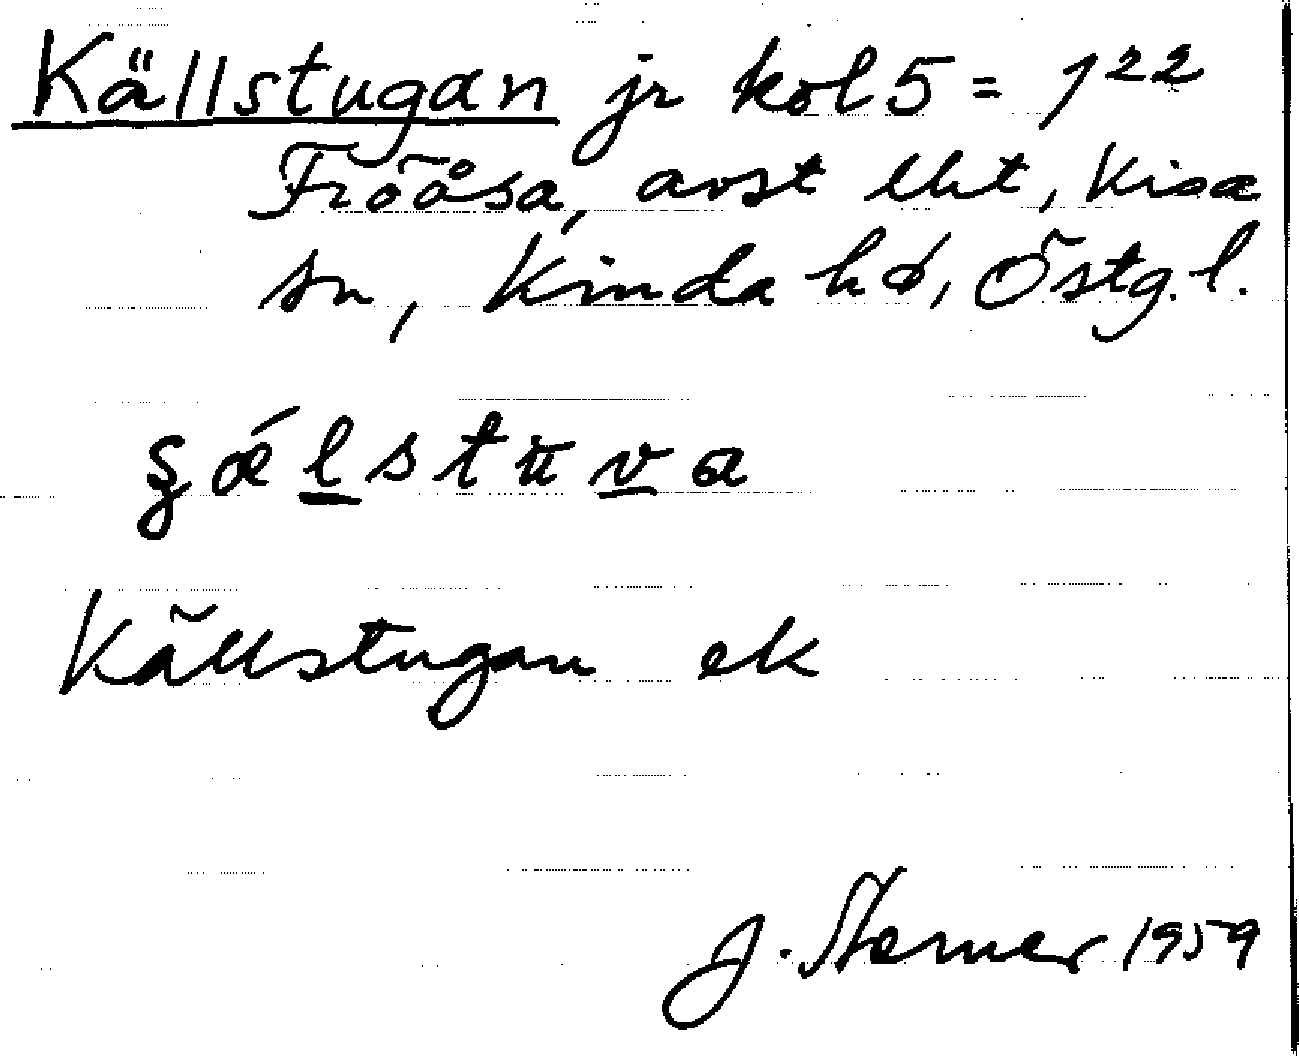 Källstugan jr kol 5 = 1²²
Fröåsa, avst lht, Kisa
sn, Kinda hd, Östg. l.
ʂǽlstuva
Källstugan ek
J. Sterner 1959